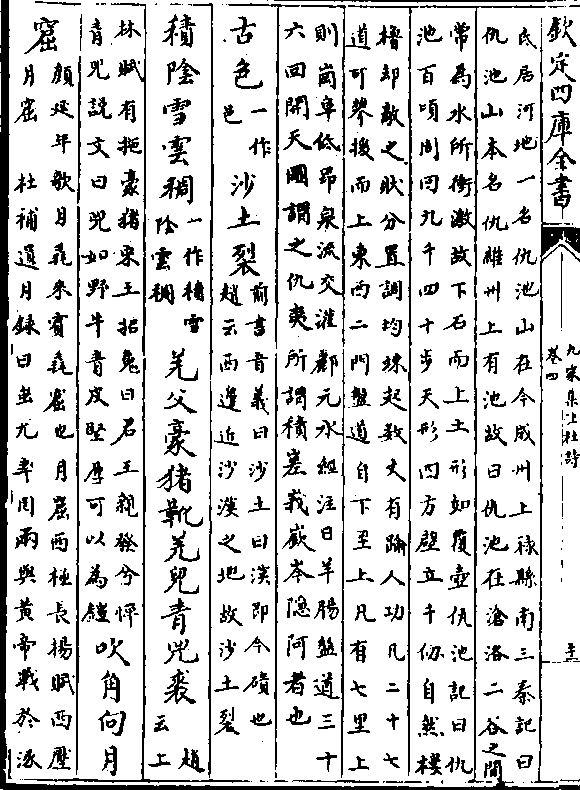 欽定四庫全書
九家集注杜詩
卷四
氐居河地一名仇池山在今成州上祿縣南三秦記曰
仇池山本名仇維州上有池故曰仇池在滄洛二谷之間
常為水所衝激故下石而上土形如覆壺仇池記曰仇
池百頃周囘九千四十步天形四方壁立千仞自然樓
櫓却敵之狀分置調均竦起數丈有踰人功凡二十七
道可攀援而上東西二門盤道自下至上凡有七里上
則崗阜低昂泉流交灌酈元水經注曰羊腸盤道三十
六回開天圖謂之仇夷所謂積嵳峩嶔岑隠阿者也
古色一作邑沙土裂前書音義曰沙土曰漠即今磧也趙云西邊近沙漠之地故沙土裂
積陰雪雲稠一作積雪陰雲稠羌父豪猪靴羌兒青兕裘趙云上
林賦有拖豪猪宋玉招䰟曰君王親發兮憚青兕説文曰兕如野牛青皮堅厚可以為鎧吹角向月
窟顔延年歌月竁來賓竁窟也月窟西極長楊賦西壓月窟 杜補遺月録曰蚩尤率罔兩與黃帝戰於涿